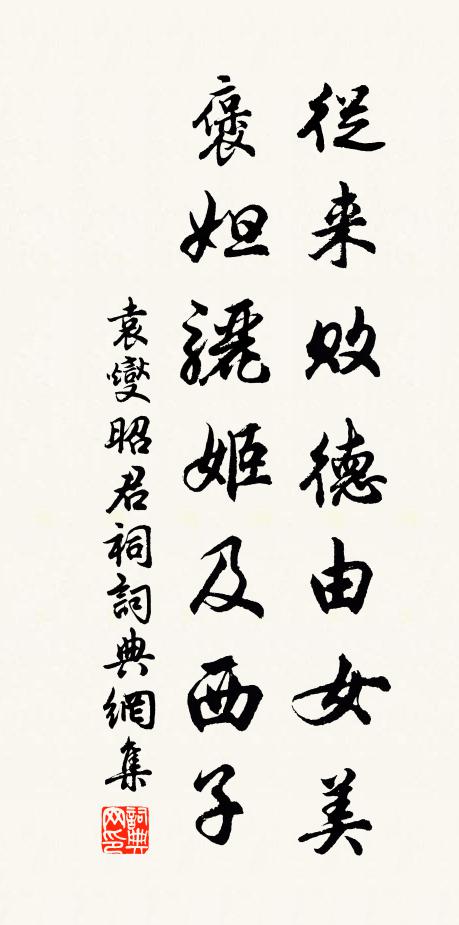 従来敗德由女美
褒妲驪姬及西子
袁燮昭君祠詞典網集
詞典网印